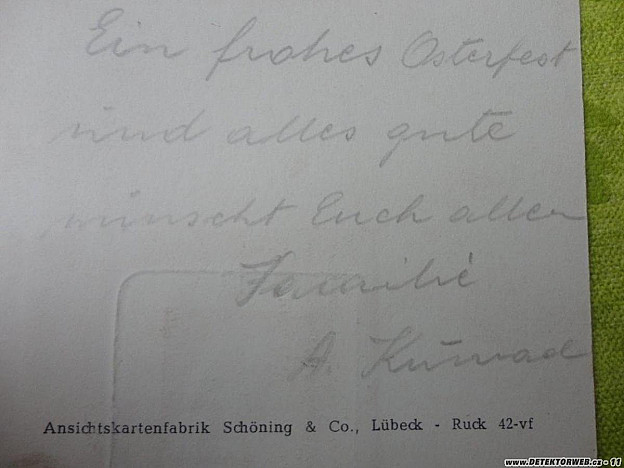 Ein frohes Osterfest
und alles gute
wünscht Euch allen
Familie
A.
Ansichtskartenfabrik Schöning & Co., Lübeck - Ruck 42-vf
www.DETEKTORWEB.cz - 11